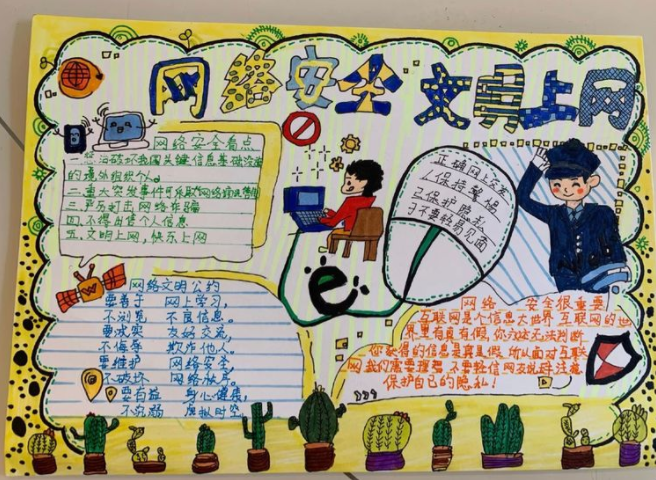 网络安全 文明上网
网络安全看点
一.惩治破坏我国关键信息基础设施
的境外组织个人。
二.重大突发事件可采取网络通讯管制
三.严厉打击网络诈骗
四.不得出售个人信息
五.文明上网,快乐上网
正确网上交友
1.保持警惕
2.保护隐私
3.不要轻易见面
网络文明公约
要善于 网上学习,
不浏览 不良信息。
要诚实 友好交流,
不侮辱 欺诈他人。
要维护 网络安全
不破坏 网络秩序。
要有益 身心健康,
不沉溺 虚拟时空。
网络 安全很重要
互联网是个信息大世界 互联网的世
界里有真有假,你永远无法判断
你获得的信息是真是假,所以面对互联
网我们需要谨慎,不要轻信网友
保护自己的隐私!
e